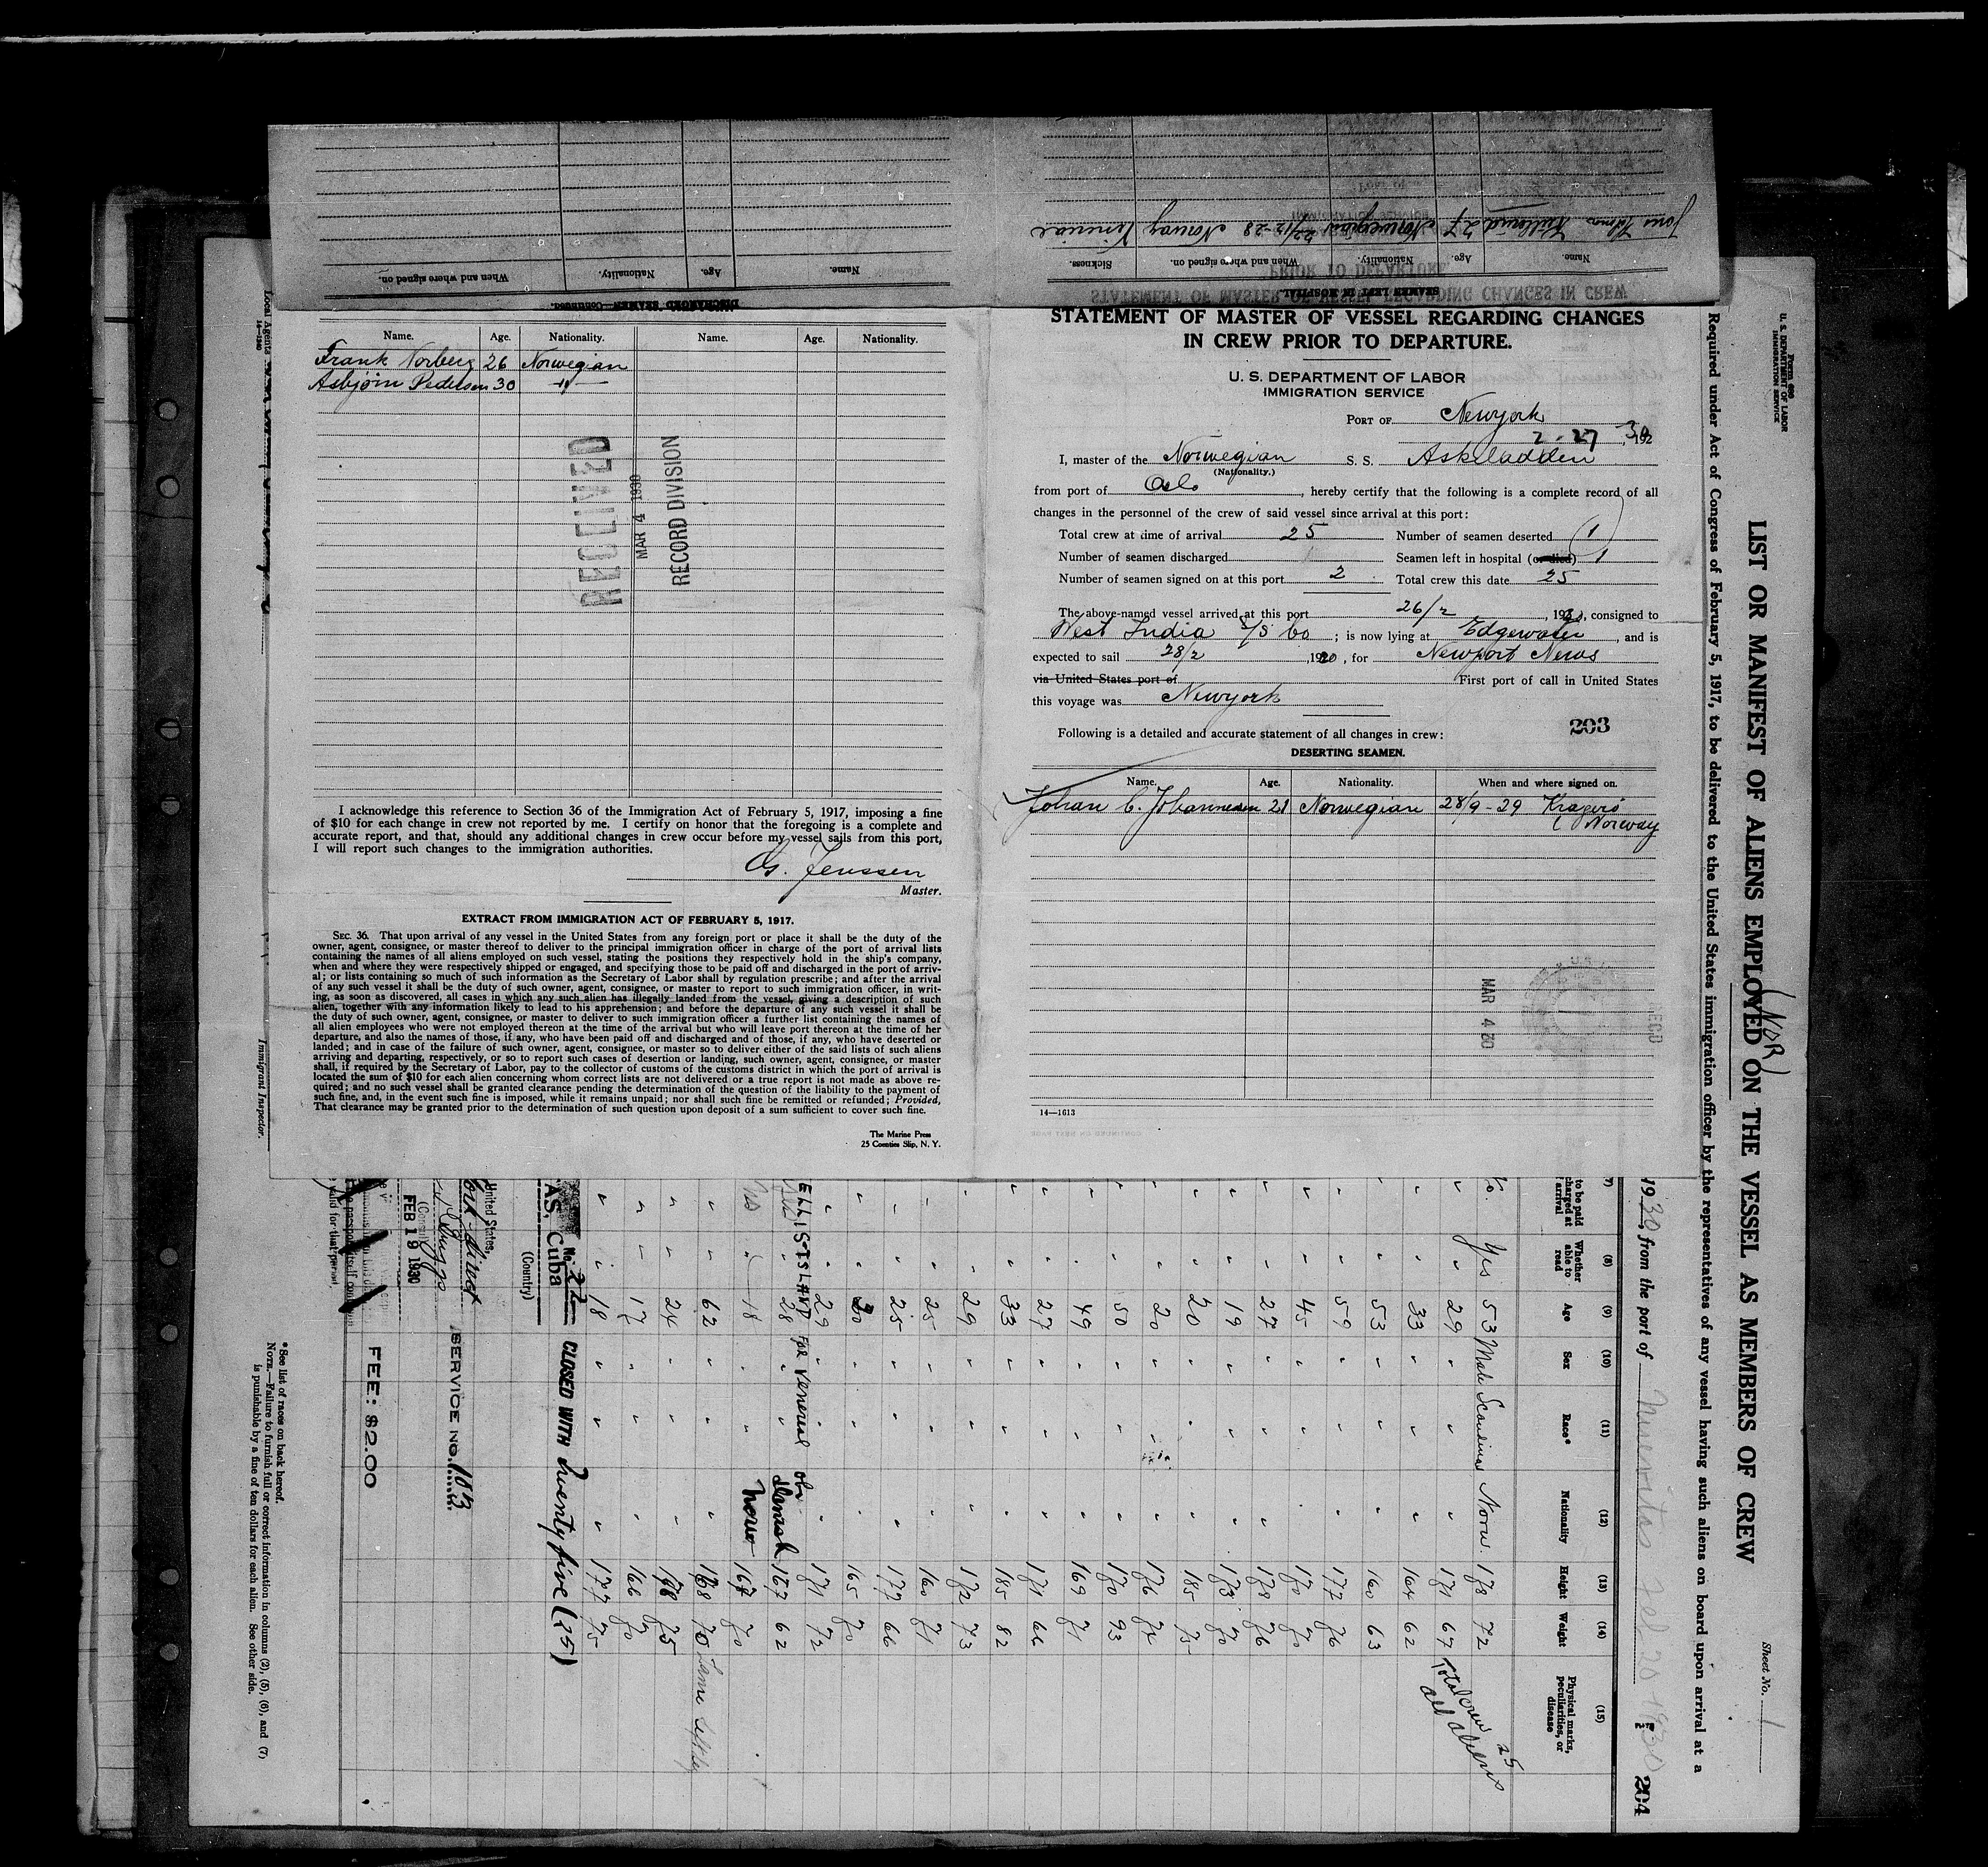 DISCHARGED SEAMEN—Continued.
Name. Age. Nationality. When and where signed on.
SEAMEN LEFT IN HOSPITAL
Name. Age. Nationality. When and where signed on. Sickness.
27 Norwegian 22/12-28 Norway
Name. Age. Nationality. Name. Age. Nationality.
Frank Norberg 26 Norwegian
Asbjörn Pedersen 30 -"-
RECEIVED
MAR 4 1930
RECORD DIVISION
I acknowledge this reference to Section 36 of the Immigration Act of February 5, 1917, imposing a fine
of $10 for each change in crew not reported by me. I certify on honor that the foregoing is a complete and
accurate report, and that, should any additional changes in crew occur before my vessel sails from this port,
I will report such changes to the immigration authorities.
G. Jenssen
Master.
EXTRACT FROM IMMIGRATION ACT OF FEBRUARY 5, 1917.
SEC. 36. That upon arrival of any vessel in the United States from any foreign port or place it shall be the duty of the
owner, agent, consignee, or master thereof to deliver to the principal immigration officer in charge of the port of arrival lists
containing the names of all aliens employed on such vessel, stating the positions they respectively hold in the ship's company,
when and where they were respectively shipped or engaged, and specifying those to be paid off and discharged in the port of arriv-
al; or lists containing so much of such information as the Secretary of Labor shall by regulation prescribe; and after the arrival
of any such vessel it shall be the duty of such owner, agent, consignee, or master to report to such immigration officer, in writ-
ing, as soon as discovered, all cases in which any such alien has illegally landed from the vessel, giving a description of such
alien, together with any information likely to lead to his apprehension; and before the departure of any such vessel it shall be
the duty of such owner, agent, consignee, or master to deliver to such immigration officer a further list containing the names of
all alien employees who were not employed thereon at the time of the arrival but who will leave port thereon at the time of her
departure, and also the names of those, if any, who have been paid off and discharged and of those, if any, who have deserted or
landed; and in case of the failure of such owner, agent, consignee, or master so to deliver either of the said lists of such aliens
arriving and departing, respectively, or so to report such cases of desertion or landing, such owner, agent, consignee, or master
shall, if required by the Secretary of Labor, pay to the collector of customs of the customs district in which the port of arrival is
located the sum of $10 for each alien concerning whom correct lists are not delivered or a true report is not made as above re-
quired; and no such vessel shall be granted clearance pending the determination of the question of the liability to the payment of
such fine, and, in the event such fine is imposed, while it remains unpaid; nor shall such fine be remitted or refunded; Provided,
That clearance may be granted prior to the determination of such question upon deposit of a sum sufficient to cover such fine.
The Marine Press
25 Coenties Slip, N. Y.
STATEMENT OF MASTER OF VESSEL REGARDING CHANGES
IN CREW PRIOR TO DEPARTURE.
U. S. DEPARTMENT OF LABOR
IMMIGRATION SERVICE
PORT OF Newyork
2-27, 1930
I, master of the Norwegian S. S. Askeladden
(Nationality.)
from port of Oslo, hereby certify that the following is a complete record of all
changes in the personnel of the crew of said vessel since arrival at this port:
Total crew at time of arrival 25 Number of seamen deserted 1
Number of seamen discharged Seamen left in hospital (or died) 1
Number of seamen signed on at this port 2 Total crew this date 25
The above-named vessel arrived at this port 26/2, 1930, consigned to
West India S/S Co; is now lying at Edgewater, and is
expected to sail 28/2, 1930, for Newport News
via United States port of First port of call in United States
this voyage was Newyork
203
Following is a detailed and accurate statement of all changes in crew:
DESERTING SEAMEN.
Name. Age. Nationality. When and where signed on.
Johan C. Johannesen 21 Norwegian 28/9-29 Kragerö
Norway
MAR 4 30
REC'D
14—1613
Form 689
U. S. DEPARTMENT OF LABOR
IMMIGRATION SERVICE
Sheet No. 1
LIST OR MANIFEST OF ALIENS EMPLOYED ON THE VESSEL AS MEMBERS OF CREW
(NOR)
Required under Act of Congress of February 5, 1917, to be delivered to the United States immigration officer by the representatives of any vessel having such aliens on board upon arrival at a
1930 from the port of Nuevitas Feb 20 1930
204
(7) (8) (9) (10) (11) (12) (13) (14) (15)
to be paid Whether able to read Age Sex Race* Nationality Height Weight Physical marks, peculiarities, or disease
Yes 53 Male Norw 178 72
" 29 " " " 171 67
" 33 " " " 164 62
" 53 " " " 160 63
" 59 " " " 177 76
" 45 " " " 170 70
" 27 " " " 178 76
" 19 " " " 173 70
" 20 " " " 185 75
" 20 " " " 176 74
" 50 " " " 170 93
" 49 " " " 169 71
" 27 " " " 171 66
" 33 " " " 185 82
" 29 " " " 172 73
" 25 " " " 160 71
" 25 " " " 172 66
" 30 " " " 165 70
" 29 " " " 171 72
" 28 " " Danish 167 62
" 18 " " Norw 167 70
" 62 " " " 168 70
" 24 " " " 178 75
" 17 " " " 166 70
" 18 " " " 177 75
Total crew 25
all aliens
ELLIS ISLAND FOR Venereal obs
No. 22 CLOSED WITH twenty five (25)
AS, Cuba
(Country)
United States,
direct
SERVICE NO. 103
(Consul)
FEB 19 1930
FEE: $2.00
*See list of races on back hereof.
NOTE.—Failure to furnish full or correct information in columns (2), (5), (6), and (7)
is punishable by a fine of ten dollars for each alien. See other side.
Local Agents
14—1240
Immigrant Inspector.